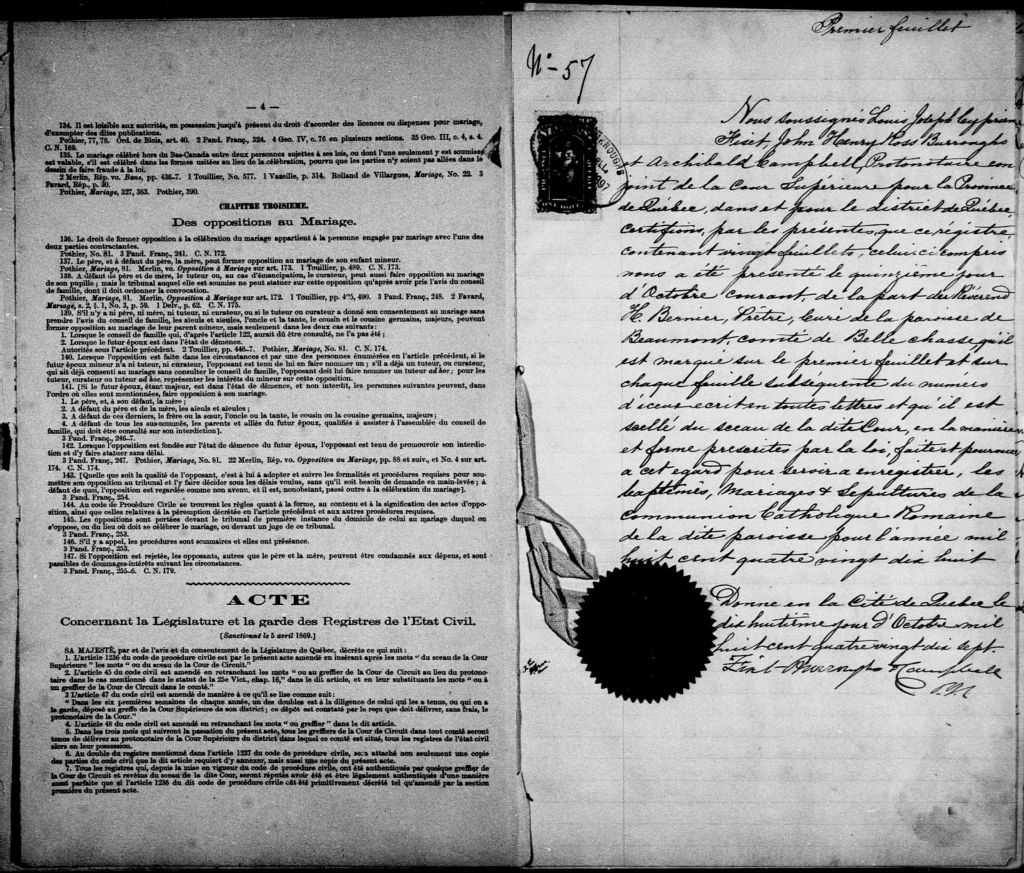 — 4 —
134. Il est loisible aux autorités, en possession jusqu'à présent du droit d'accorder des licences ou dispenses pour mariage,
d'exempter des dites publications.
Pothier, 77, 78. Ord. de Blois, art. 40. 2 Pand. Franç., 324. 4 Geo. IV, c. 76 en plusieurs sections. 35 Geo. III, c. 4, s. 4.
C. N. 169.
135. Le mariage célébré hors du Bas-Canada entre deux personnes sujettes à ses lois, ou dont l'une seulement y est soumise
est valable, s'il est célébré dans les formes usitées au lieu de la célébration, pourvu que les parties n'y soient pas allées dans le
dessin de faire fraude à la loi.
2 Merlin, Rép. vo. Bans, pp. 436-7. 1 Touiller, No. 577. 1 Vazeille, p. 314. Rolland de Villargues, Mariage, No. 22. 3
Favard, Rép., p. 30.
Pothier, Mariage, 327, 363. Pothier, 390.
CHAPITRE TROISIEME.
Des oppositions au Mariage.
136. Le droit de former opposition à la célébration du mariage appartient à la personne engagée par mariage avec l'une des
deux parties contractantes.
Pothier, No. 81. 3 Pand. Franç., 241. C. N. 172.
137. Le père, et à défaut du père, la mère, peut former opposition au mariage de son enfant mineur.
Pothier, Mariage, 81. Merlin, vo. Opposition à Mariage sur art. 173. 1 Touillier, p. 489. C. N. 173.
138. A défaut du père et de mère, le tuteur ou, au cas d'émancipation, le curateur, peut aussi faire opposition au mariage
de son pupille; mais le tribunal auquel elle est soumise ne peut statuer sur cette opposition qu'après avoir pris l'avis du conseil
de famille, dont il doit ordonner la convocation.
Pothier, Mariage, 81. Merlin, Opposition à Mariage sur art. 172. 1 Touillier, pp. 490. 3 Pand. Franç., 248. 2 Favard,
Mariage, s. 2, § 1, No. 3, p. 59. 1 Delv., p. 62. C. N. 175.
139. S'il n'y a ni père, ni mère, ni tuteur, ni curateur, ou si le tuteur ou curateur a donné son consentement au mariage sans
prendre l'avis du conseil de famille, les aïeuls et aïeules, l'oncle et la tante, le cousin et la cousine germains, majeurs, peuvent
former opposition au mariage de leur parent mineur, mais seulement dans les deux cas suivants:
1. Lorsque le conseil de famille qui, d'après l'article 122, aurait dû être consulté, ne l'a pas été;
2. Lorsque le futur époux est dans l'état de démence.
Autorités sous l'article précédent. 2 Touillier, pp. 446-7. Pothier, Mariage, No. 81. C. N. 174.
140. Lorsque l'opposition est faite dans les circonstances et par une des personnes énumérées en l'article précédent, si le
futur époux mineur n'a ni tuteur, ni curateur, l'opposant est tenu de lui en faire nommer un; s'il a déjà un tuteur ou curateur,
qui ait déjà consenti au mariage sans consulter le conseil de famille, l'opposant doit lui faire nommer un tuteur ad hoc; pour les
tuteur, curateur ou tuteur ad hoc, représenter les intérêts du mineur sur cette opposition.
141. [Si le futur époux, étant majeur, est dans l'état de démence, et non interdit, les personnes suivantes peuvent, dans
l'ordre où elles sont mentionnées, faire opposition à son mariage.
1. Le père, et, à son défaut, la mère;
2. A défaut du père et de la mère, les aïeuls et aïeules;
3. A défaut de ces derniers, le frère ou la sœur, l'oncle ou la tante, le cousin ou la cousine germains, majeurs;
4. A défaut de tous les sus-nommés, les parents et alliés du futur époux, qualifiés à assister à l'assemblée du conseil de
famille, qui doit être consulté sur son interdiction].
3 Pand. Franç., 246-7.
142. Lorsque l'opposition est fondée sur l'état de démence du futur époux, l'opposant est tenu de promouvoir son interdic-
tion et d'y faire statuer sans délai.
3 Pand. Franç., 247. Pothier, Mariage, No. 81. 22 Merlin, Rép. vo. Opposition au Mariage, pp. 88 et suiv., et No. 4 sur art.
174. C. N. 174.
143. [Quelle que soit la qualité de l'opposant, c'est à lui à adopter et suivre les formalités et procédures requises pour sou-
mettre son opposition au tribunal et l'y faire décider sous les délais voulus, sans qu'il soit besoin de demande en main-levée; à
défaut de quoi, l'opposition est regardée comme non avenu, et il est, nonobstant, passé outre à la célébration du mariage].
3 Pand. Franç., 254.
144. Au code de Procédure Civile se trouvent les règles quant à la forme, au contenu et à la signification des actes d'oppo-
sition, ainsi que celles relatives à la péremption décrétée en l'article précédent et aux autres procédures requises.
145. Les oppositions sont portées devant le tribunal de première instance du domicile de celui au mariage duquel on
s'oppose, ou du lieu où doit se célébrer le mariage, ou devant un juge de ce tribunal.
3 Pand. Franç., 252.
146. S'il y a appel, les procédures sont sommaires et elles ont préséance.
3 Pand. Franç., 253.
147. Si l'opposition est rejetée, les opposants, autres que le père et la mère, peuvent être condamnés aux dépens, et sont
passibles de dommages-intérêts suivant les circonstances.
3 Pand. Franç., 255-6. C. N. 179.
ACTE
Concernant la Législature et la garde des Registres de l'Etat Civil.
[Sanctionné le 5 avril 1869.]
SA MAJESTÉ, par et de l'avis et du consentement de la Législature de Québec, décrète ce qui suit:
1. L'article 1236 du code de procédure civile est par le présent acte amendé en insérant après les mots "du sceau de la Cour
Supérieure" les mots "ou du sceau de la Cour de Circuit."
2. L'article 45 du code civil est amendé en retranchant les mots "ou au greffier de la Cour de Circuit au lieu du protono-
taire dans le cas mentionné dans le statut de la 25e Vict., chap. 16," dans le dit article, et en leur substituants les mots "ou à
un greffier de la Cour de Circuit dans le comté."
3 L'article 47 du code civil est amendé de manière à ce qu'il se lise comme suit:
"Dans les six premières semaines de chaque année, un des doubles est à la diligence de celui qui les a tenus, ou qui en a
la garde, déposé au greffe de la Cour Supérieure de son district; ce dépôt est constaté par le reçu que doit délivrer, sans frais, le
protonotaire de la Cour."
4. L'article 48 du code civil est amendé en retranchant les mots "ou greffier" dans le dit article.
5. Dans les trois mois qui suivront la passation du présent acte, tous les greffiers de la Cour de Circuit dans tout comté seront
tenus de délivrer au protonotaire de la Cour Supérieure du district dans lequel ce comté est situé, tous les registres de l'état civil
alors en leur possession.
6. Au double du registre mentionné dans l'article 1237 du code de procédure civile, sera attaché non seulement une copie
des parties du code civil que le dit article requiert d'y annexer, mais aussi une copie du présent acte.
7. Tous les registres qui, depuis la mise en vigueur du code de procédure civile, ont été authentiqués par quelque greffier de
la Cour de Circuit et revêtus du sceau de la dite Cour, seront réputés avoir été et être légalement authentiqués d'une manière
aussi parfaite que si l'article 1236 du dit code de procédure civile eût été primitivement décrété tel qu'amendé par la section
première du présent acte.
Premier feuillet
No - 57
Nous soussignés Louis Joseph Cyprien
Fiset, John Henry Ross Burroughs
et Archibald Campbell, Protonotaire con
joint de la Cour Supérieure pour la Province
de Québec, dans et pour le district de Québec,
certifions, par les présentes, que ce registre,
contenant vingt feuillets, celui ci compris
nous a été présenté le quinzième jour
d'Octobre courant, de la part du Révérend
H. Bernier, Prêtre, Curé de la paroisse de
Beaumont, comté de Belle chasse qu'il
est marqué sur le premier feuillet et sur
chaque feuille subséquente du numéro
d'iceux écrit en toutes lettres et qu'il est
scellé du sceau de la dite Cour, en la manière
et forme prescrites par la loi, faite et pourvue
à cet égard pour servir à enregistrer, les
baptêmes, Mariages & Sépultures de la
communion Catholique Romaine
de la dite paroisse pour l'année mil
huit cent quatre vingt dix huit
Donné en la Cité de Québec le
dix huitième jour d'Octobre mil
huit cent quatre vingt dix sept.
Fiset Burroughs Campbell
P.